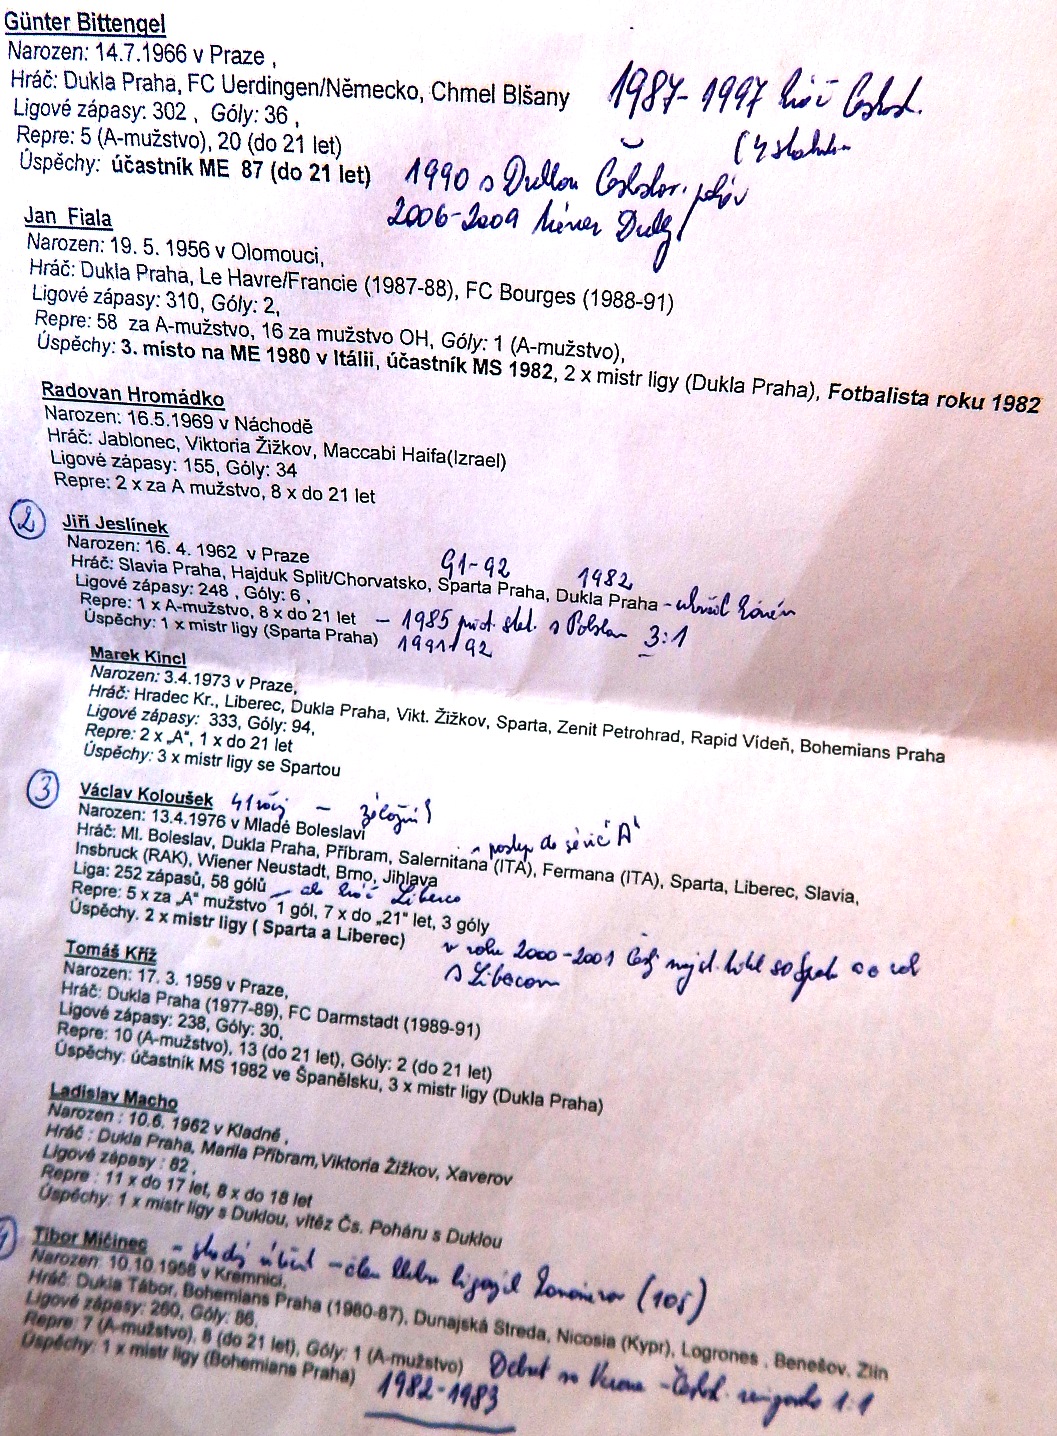 Günter Bittengel
Narozen: 14.7.1966 v Praze ,
Hráč: Dukla Praha, FC Uerdingen/Německo, Chmel Blšany
1987-1997 hráč
Ligové zápasy: 302 , Góly: 36 ,
Repre: 5 (A-mužstvo), 20 (do 21 let)
Úspěchy: účastník ME 87 (do 21 let)
1990 s Duklou
2006-2009 tréner Dukly
Jan Fiala
Narozen: 19. 5. 1956 v Olomouci,
Hráč: Dukla Praha, Le Havre/Francie (1987-88), FC Bourges (1988-91)
Ligové zápasy: 310, Góly: 2,
Repre: 58 za A-mužstvo, 16 za mužstvo OH, Góly: 1 (A-mužstvo),
Úspěchy: 3. místo na ME 1980 v Itálii, účastník MS 1982, 2 x mistr ligy (Dukla Praha), Fotbalista roku 1982
Radovan Hromádko
Narozen: 16.5.1969 v Náchodě
Hráč: Jablonec, Viktoria Žižkov, Maccabi Haifa(Izrael)
Ligové zápasy: 155, Góly: 34
Repre: 2 x za A mužstvo, 8 x do 21 let
2 Jiří Jeslínek
Narozen: 16. 4. 1962 v Praze
91-92 1982
Hráč: Slavia Praha, Hajduk Split/Chorvatsko, Sparta Praha, Dukla Praha -
Ligové zápasy: 248 , Góly: 6 ,
Repre: 1 x A-mužstvo, 8 x do 21 let - 1985 s Polskem 3:1
Úspěchy: 1 x mistr ligy (Sparta Praha) 1991-92
Marek Kincl
Narozen: 3.4.1973 v Praze,
Hráč: Hradec Kr., Liberec, Dukla Praha, Vikt. Žižkov, Sparta, Zenit Petrohrad, Rapid Vídeň, Bohemians Praha
Ligové zápasy: 333, Góly: 94,
Repre: 2 x „A“, 1 x do 21 let
Úspěchy: 3 x mistr ligy se Spartou
3 Václav Koloušek -
Narozen: 13.4.1976 v Mladé Boleslavi
postup do série "A"
Hráč: Ml. Boleslav, Dukla Praha, Příbram, Salernitana (ITA), Fermana (ITA), Sparta, Liberec, Slavia,
Insbruck (RAK), Wiener Neustadt, Brno, Jihlava
Liga: 252 zápasů, 58 gólů
Repre: 5 x za „A“ mužstvo 1 gól, 7 x do „21“ let, 3 góly
Úspěchy. 2 x mistr ligy ( Sparta a Liberec)
v roku 2000-2001
s Libercom
Tomáš Kříž
Narozen: 17. 3. 1959 v Praze,
Hráč: Dukla Praha (1977-89), FC Darmstadt (1989-91)
Ligové zápasy: 238, Góly: 30,
Repre: 10 (A-mužstvo), 13 (do 21 let), Góly: 2 (do 21 let)
Úspěchy: účastník MS 1982 ve Španělsku, 3 x mistr ligy (Dukla Praha)
Ladislav Macho
Narozen : 10.6. 1962 v Kladně ,
Hráč : Dukla Praha, Marila Příbram,Viktoria Žižkov, Xaverov
Ligové zápasy : 82 ,
Repre : 11 x do 17 let, 8 x do 18 let
Úspěchy: 1 x mistr ligy s Duklou, vítěz Čs. Poháru s Duklou
Tibor Mičinec - - člen klubu ligových kanonierov (105)
Narozen: 10.10.1958 v Kremnici,
Hráč: Dukla Tábor, Bohemians Praha (1980-87), Dunajská Streda, Nicosia (Kypr), Logrones , Benešov, Zlín
Ligové zápasy: 260, Góly: 86,
Repre: 7 (A-mužstvo), 8 (do 21 let), Góly: 1 (A-mužstvo)
Úspěchy: 1 x mistr ligy (Bohemians Praha)
Debut 1:1
1982-1983